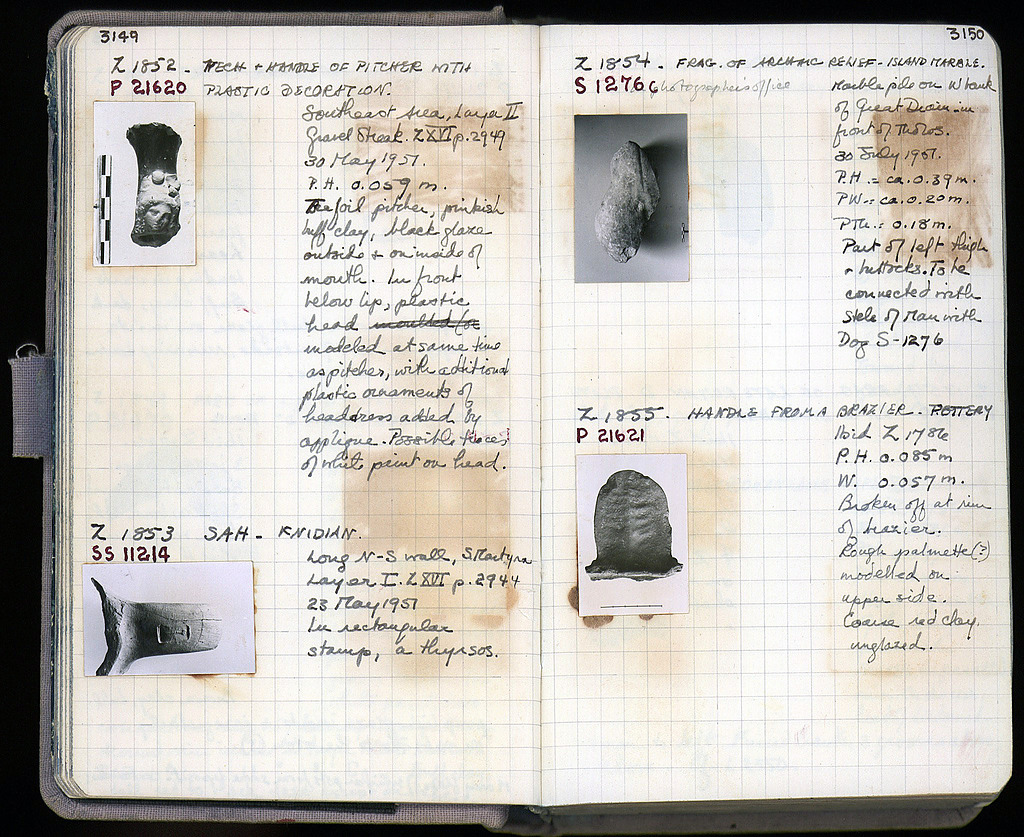 3149
Z 1852 - NECK + HANDLE OF PITCHER WITH
P 21620 PLASTIC DECORATION.
Southeast Area, Layer II
Gravel Streak. Z XVI p. 2949
30 May 1951.
P.H. 0.059 m.
Trefoil pitcher, pinkish
buff clay, black glaze
outside + on inside of
mouth. In front
below lip, plastic
head moulded (or
modeled at same time
as pitcher, with additional
plastic ornaments of
headdress added by
applique. Possible traces
of white paint on head.
Z 1853 SAH - KNIDIAN.
SS 11214
Long N-S wall, S Martyra
Layer I. Z XVI p. 2944
23 May 1951
In rectangular
stamp, a thyrsos.
3150
Z 1854 - FRAG. OF ARCHAIC RELIEF - ISLAND MARBLE.
S 1276 c photographer's office
Marble pile on W bank
of Great Drain in
front of Tholos.
30 July 1951.
P.H. = ca. 0.39 m.
PW. = ca. 0.20 m.
PTh. = 0.18 m.
Part of left thigh
+ buttocks. To be
connected with
stele of Man with
Dog S-1276
Z 1855. HANDLE FROM A BRAZIER. POTTERY
P 21621
Ibid Z 1786
P.H. 0.085 m
W. 0.057 m.
Broken off at rim
of brazier.
Rough palmette (?)
modelled on
upper side.
Coarse red clay,
unglazed.